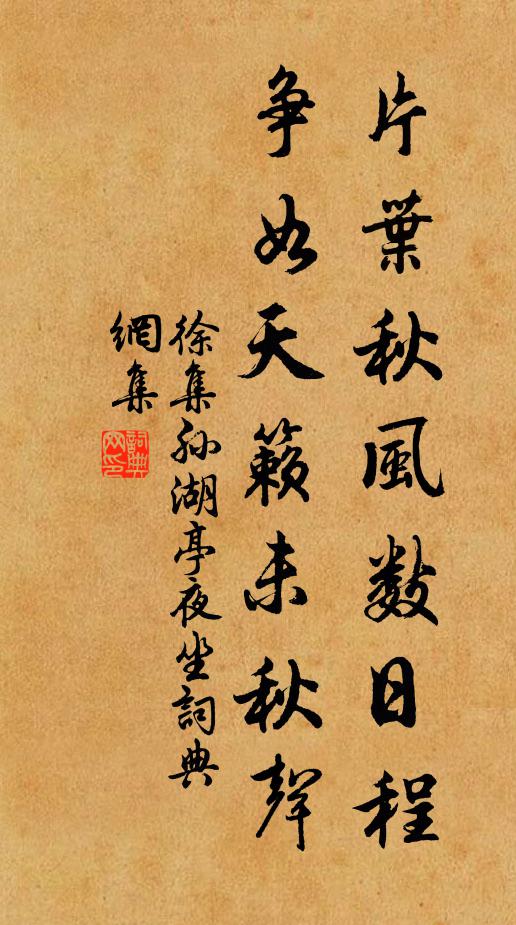 片葉秋風數日程
争如天籟未秋聲
徐集孫湖亭夜坐詞典
網集
詞典網印